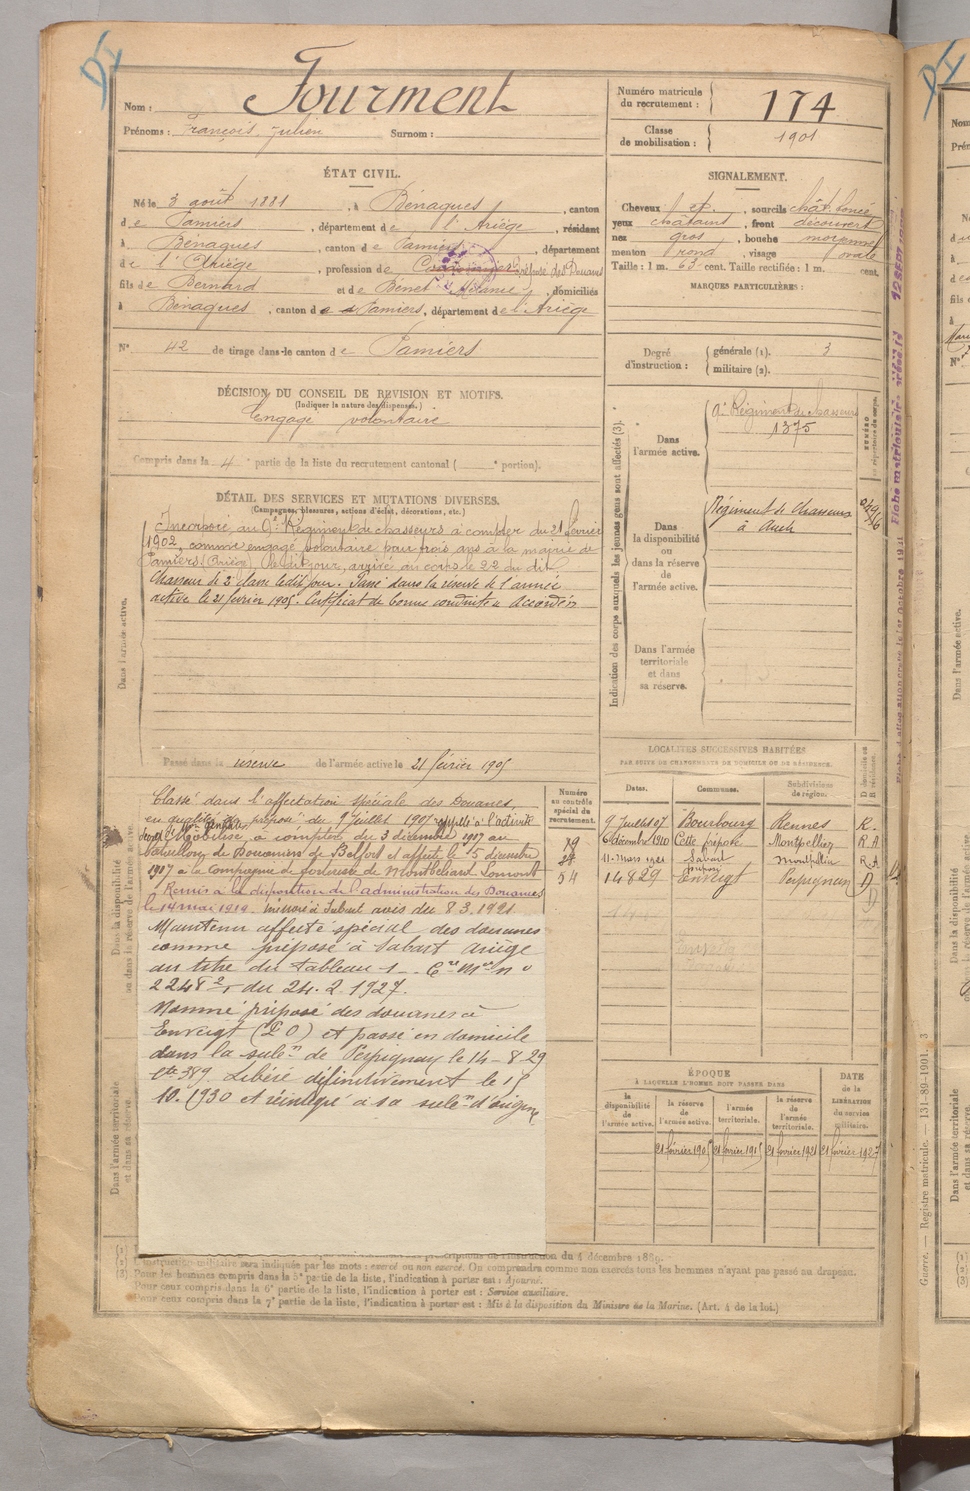 Nom : Fourment
Prénoms : François Julien Surnom :
Numéro matricule du recrutement : 174
Classe de mobilisation : 1901
ÉTAT CIVIL.
Né le 3 août 1881, à Bénagues, canton
de Pamiers, département de l'Ariège, résidant
à Bénagues, canton de Pamiers, département
de l'Ariège, profession de préposé des Douanes
fils de Bernard et de Benet Mélanie, domiciliés
à Bénagues, canton de Pamiers, département de l'Ariège
N° 42 de tirage dans le canton de Pamiers
SIGNALEMENT.
Cheveux, sourcils
yeux châtains, front découvert
nez gros, bouche moyenne
menton rond, visage ovale
Taille : 1 m. 63 cent. Taille rectifiée : 1 m. cent.
MARQUES PARTICULIÈRES :
Degré d'instruction : générale (1). 3
militaire (2).
DÉCISION DU CONSEIL DE REVISION ET MOTIFS.
(Indiquer la nature des dispenses.)
Engagé volontaire
Compris dans la 4e partie de la liste du recrutement cantonal ( e portion).
DÉTAIL DES SERVICES ET MUTATIONS DIVERSES.
(Campagnes, blessures, actions d'éclat, décorations, etc.)
Dans l'armée active.
Incorporé au 9e Régiment de chasseurs à compter du 21 février
1902, comme engagé volontaire pour trois ans à la mairie de
Pamiers (Ariège), le dit jour, arrivé au corps le 22 du dit
Chasseur de 2e classe ledit jour. Passé dans la réserve de l'armée
active le 21 février 1905. Certificat de bonne conduite « Accordé »
Passé dans la réserve de l'armée active le 21 février 1905
Indication des corps auxquels les jeunes gens sont affectés (3).
Dans l'armée active.
9e Régiment de chasseurs
1375
Dans la disponibilité ou dans la réserve de l'armée active.
Régiment de Chasseurs
à Auch
Dans l'armée territoriale et dans sa réserve.
NUMÉRO au répertoire du corps.
Dans la disponibilité ou dans la réserve de l'armée active.
Classé dans l'affectation spéciale des Douanes,
en qualité de préposé du 9 Juillet 1907 rappelé à l'activité
Mobilisé, à compter du 3 décembre 1917 au
bataillon de Douaniers de Belfort et affecté le 5 décembre
1917 à la Compagnie de forteresse de Montbéliard Lomont
Remis à la disposition de l'administration des Douanes
le 14 mai 1919. à Sabart avis du 8 3.1921
Maintenu affecté spécial des douanes
comme préposé à Sabart Ariège
au titre du tableau 1
du 24.2.1927.
Nommé préposé des douanes à
Enveigt (P O) et passé en domicile
dans la subon de Perpignan le 14-8-29
Libéré définitivement le 15
10.1930 et réintégré à sa subon d'origine
Dans l'armée territoriale et dans sa réserve.
Numéro au contrôle spécial du recrutement.
LOCALITÉS SUCCESSIVES HABITÉES
PAR SUITE DE CHANGEMENTS DE DOMICILE OU DE RÉSIDENCE.
Dates. Communes. Subdivisions de région. D domicile ou R résidence.
9 Juillet 07 Bourbourg Rennes R.
6 décembre 1910 Cette préposé Montpellier R.A
11 Mars 1921 Sabart Montpellier R.A
54 14 8 29 Enveigt Perpignan D
ÉPOQUE
À LAQUELLE L'HOMME DOIT PASSER DANS
la disponibilité de l'armée active. la réserve de l'armée active. l'armée territoriale. la réserve de l'armée territoriale. DATE de la LIBÉRATION du service militaire.
21 février 1905 21 février 1915 21 février 1921 21 février 1927
prescriptions de l'instruction du 4 décembre 1889.
(2) L'instruction militaire sera indiquée par les mots : exercé ou non exercé. On comprendra comme non exercés tous les hommes n'ayant pas passé au drapeau.
(3) Pour les hommes compris dans la 5e partie de la liste, l'indication à porter est : Ajourné.
Pour ceux compris dans la 6e partie de la liste, l'indication à porter est : Service auxiliaire.
Pour ceux compris dans la 7e partie de la liste, l'indication à porter est : Mis à la disposition du Ministre de la Marine. (Art. 4 de la loi.)
Guerre. — Registre matricule. — 131-89-1901. 3